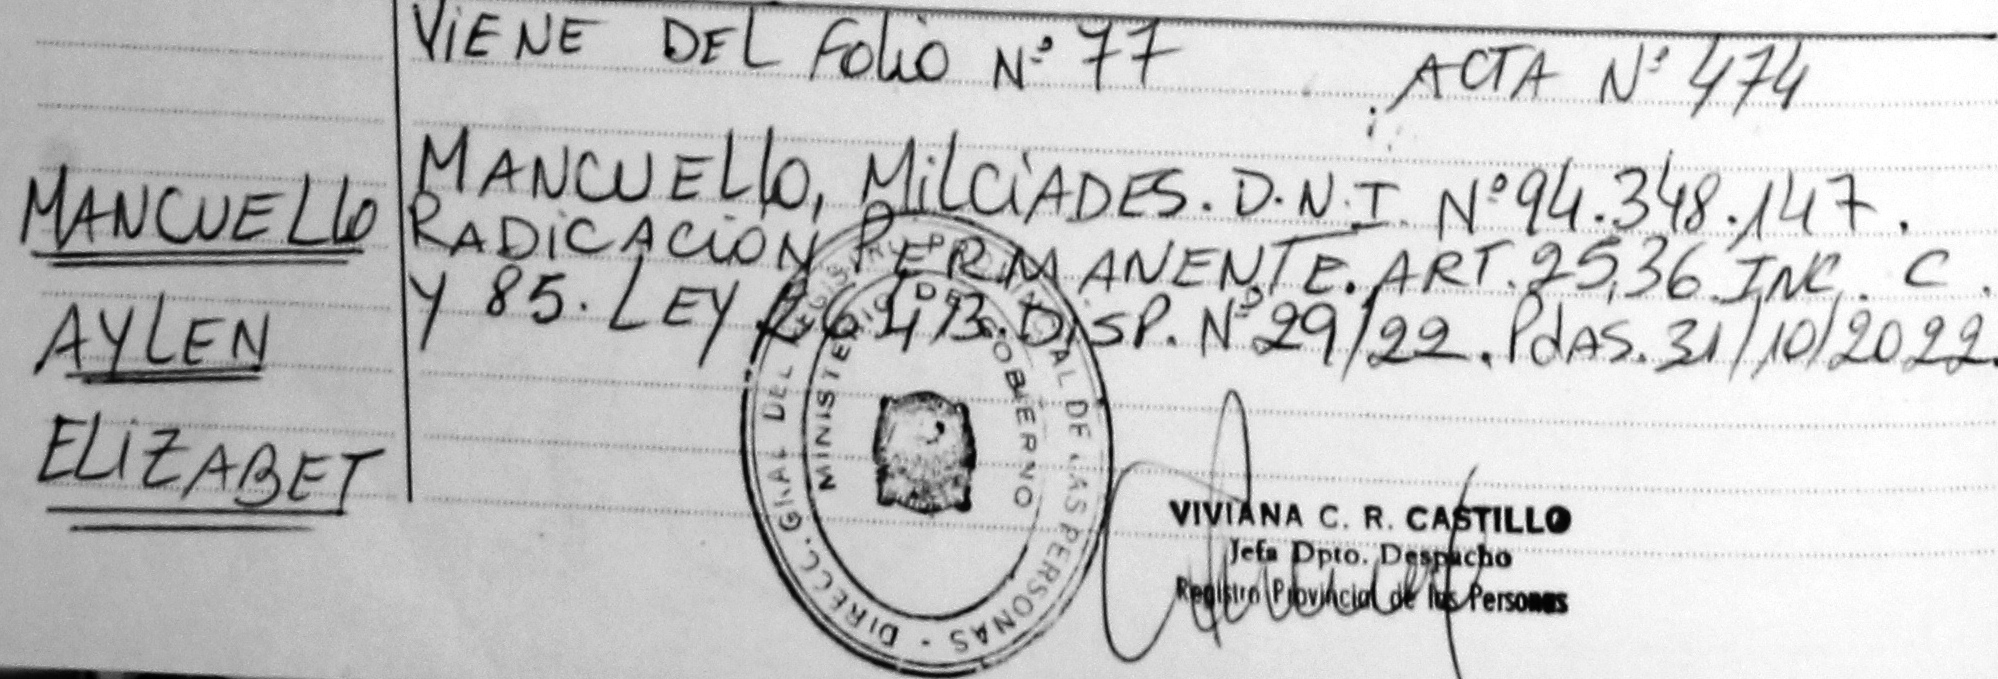 VIENE DEL FOLIO Nº 77
ACTA Nº 474
MANCUELLO
AYLEN
ELIZABET
MANCUELLO, MILCIADES. D.N.I. Nº 94.348.147.
RADICACIÓN PERMANENTE. ART. 25,36. INC. C.
Y 85. LEY 26.413. DISP. Nº 29/22. PdAS. 31/10/2022.
DIRECC. GRAL DEL REGISTRO PROVINCIAL DE LAS PERSONAS -
MINISTERIO DE GOBIERNO
VIVIANA C. R. CASTILLO
Jefa Dpto. Despacho
Registro Provincial de las Personas